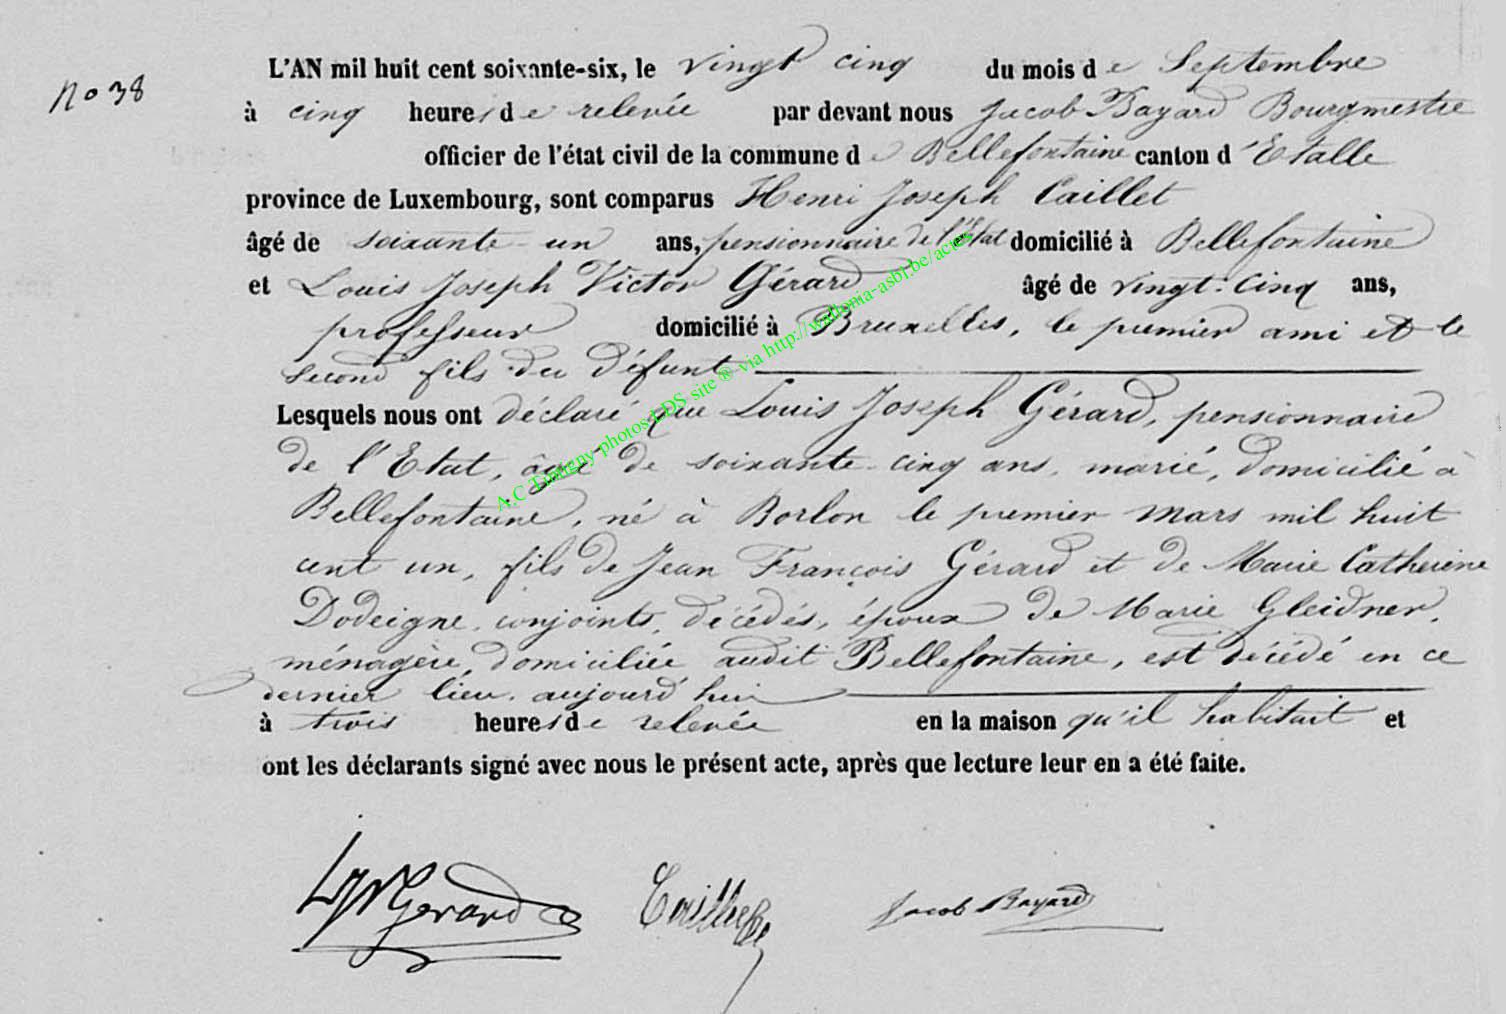 No 38
L'AN mil huit cent soixante-six, le vingt cinq du mois de Septembre
à cinq heures de relevée par devant nous Jacob Bayard Bourgmestre
officier de l'état civil de la commune de Bellefontaine canton d'Etalle
province de Luxembourg, sont comparus Henri Joseph Caillet
âgé de soixante un ans, pensionnaire de l'Etat domicilié à Bellefontaine
et Louis Joseph Victor Gérard âgé de vingt-cinq ans,
professeur domicilié à Bruxelles, le premier ami et le
second fils du défunt
Lesquels nous ont déclaré que Louis Joseph Gérard, pensionnaire
de l'Etat, âgé de soixante-cinq ans, marié, domicilié à
Bellefontaine, né à Borlon le premier mars mil huit
cent un, fils de Jean François Gérard et de Marie Catherine
Dodeigne, conjoints, décédés, époux de Marie Gleidner,
ménagère, domiciliée audit Bellefontaine, est décédé en ce
dernier lieu, aujourd'hui
à trois heures de relevée en la maison qu'il habitait et
ont les déclarants signé avec nous le présent acte, après que lecture leur en a été faite.
A.C Tintigny photos LDS site ® via http://wallonia-asbl.be/actes
Gerard Jacob Bayard